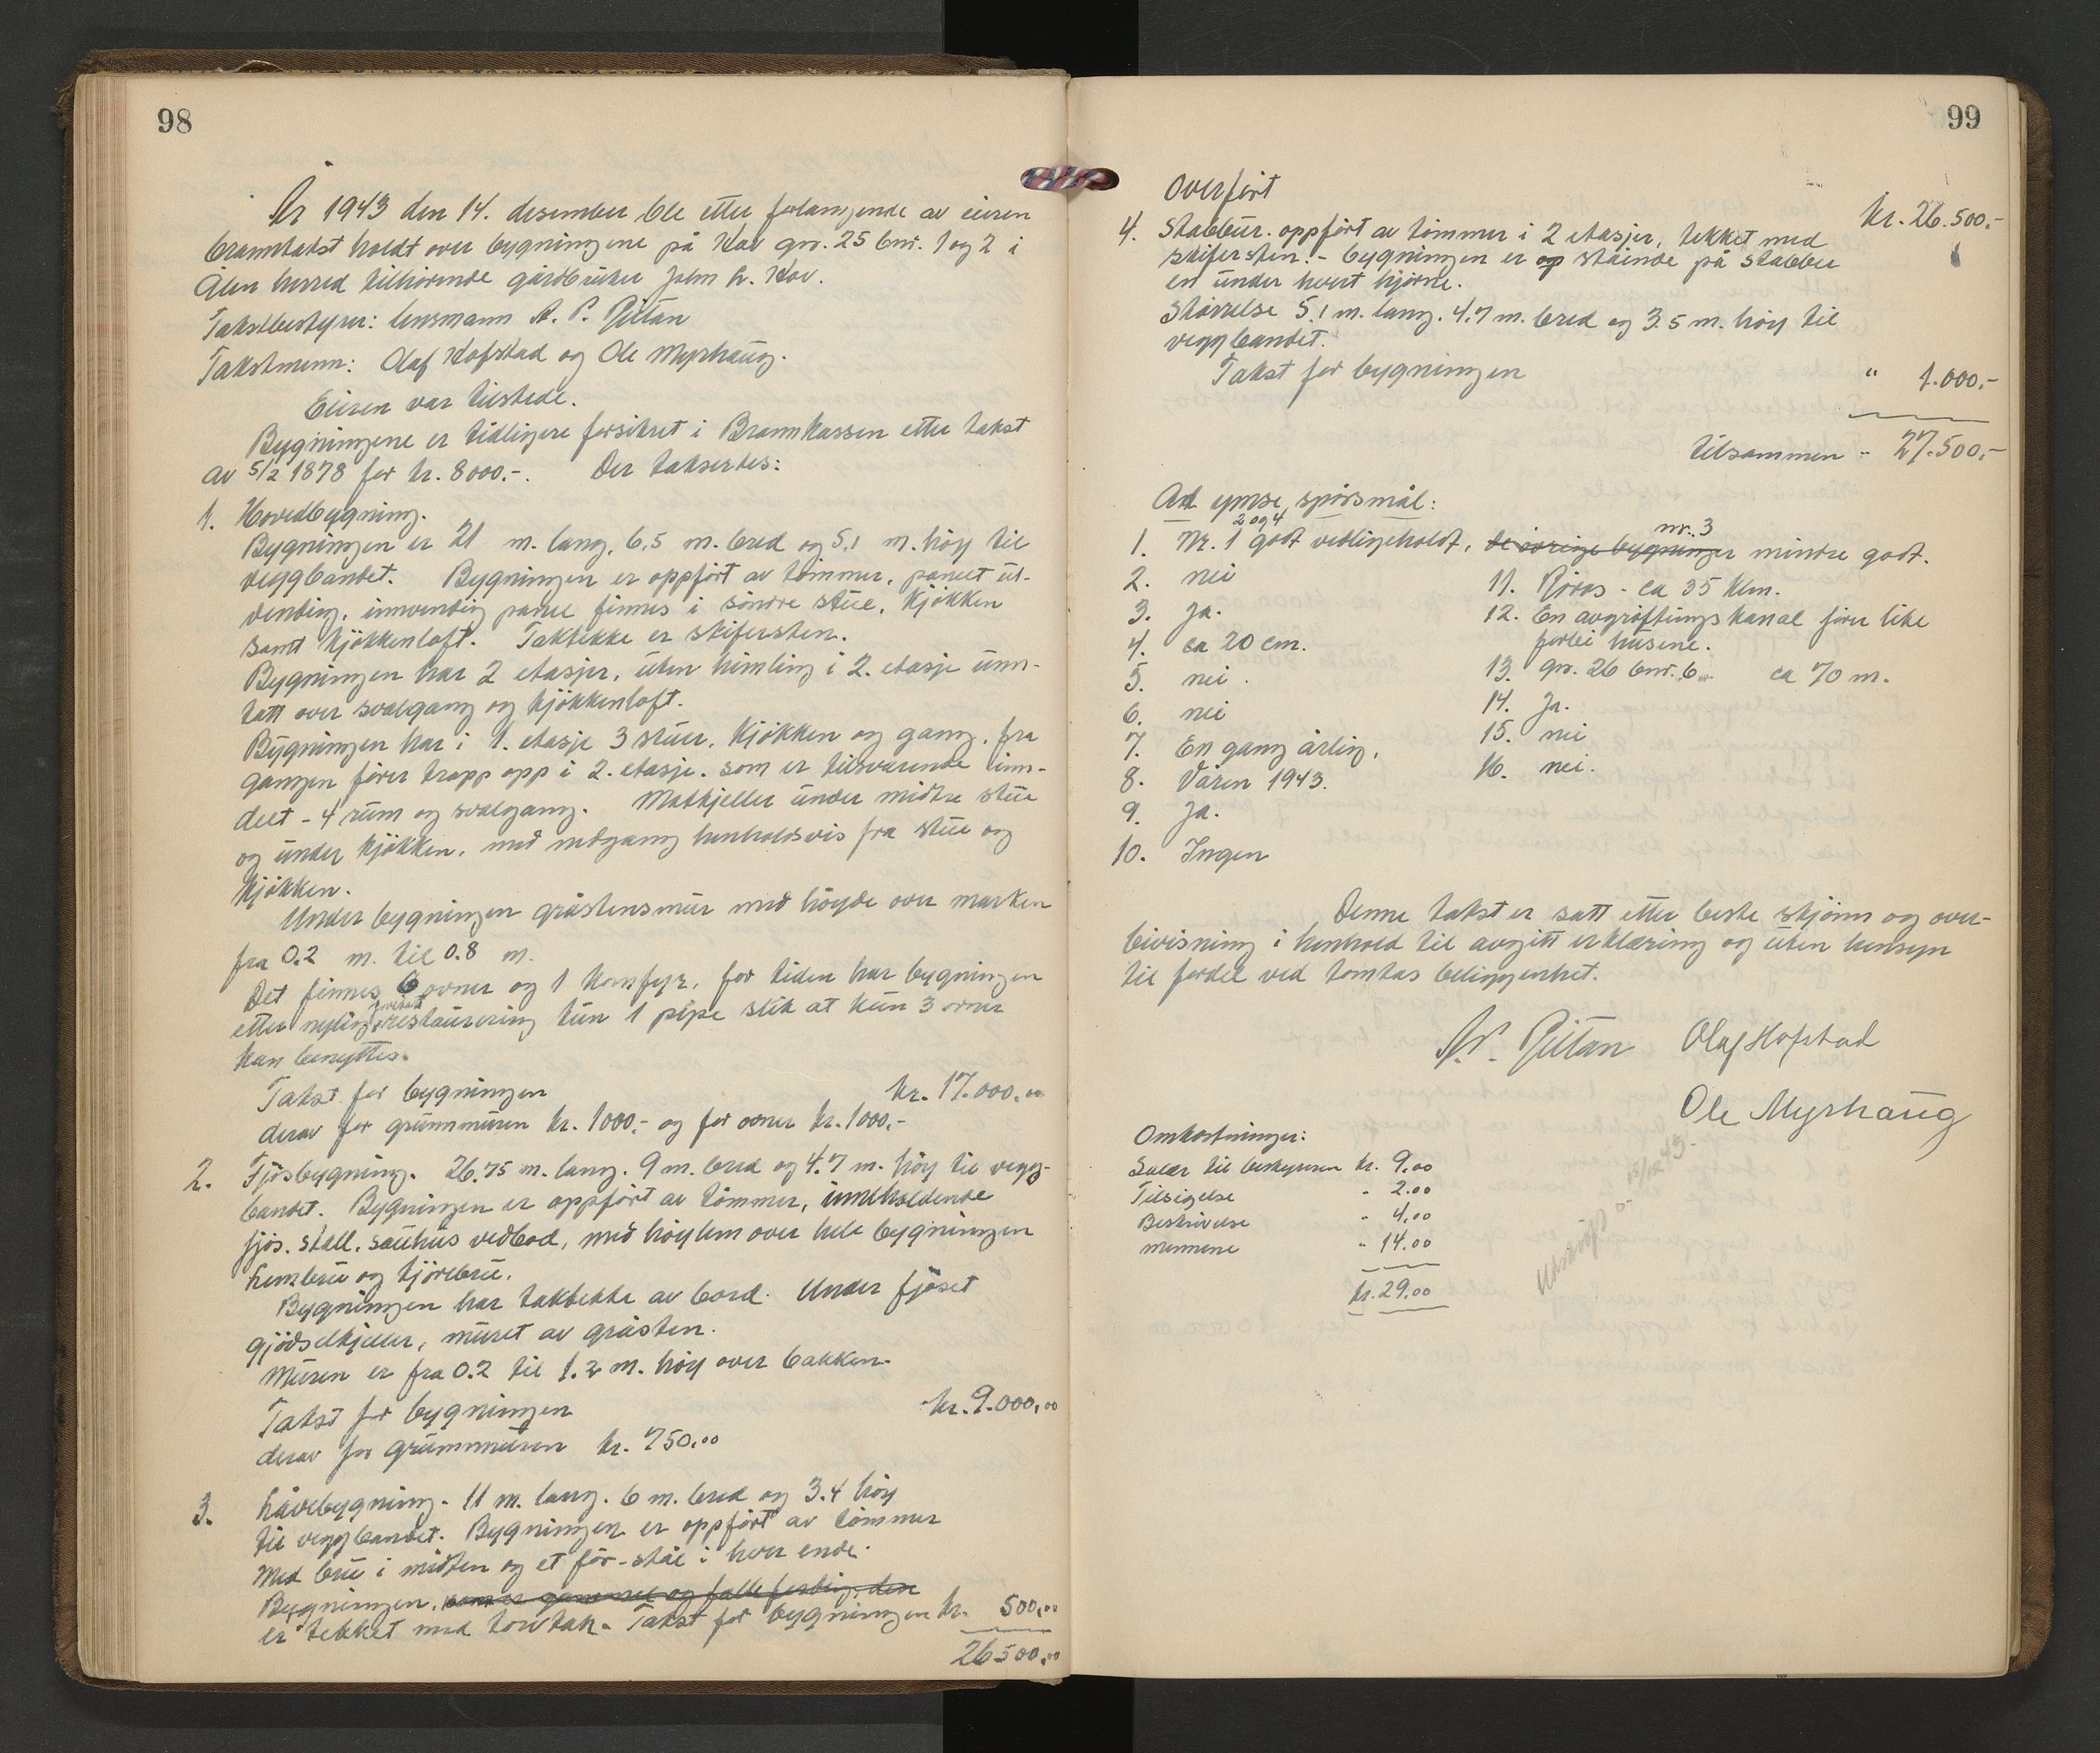 98
År 1943 den 14. desember ble etter forlangende av eieren
branntakst holdt over bygningene på Hov gnr. 25 bnr. 1 og 2 i
Ålen herred tilhørende gårdbruker John H. Hov.
Takstbestyrer: lensmann A. P. Gjitan
Takstmenn: Olaf Hofstad og Ole Myrhaug.
Eieren var tilstede.
Bygningene er tidligere forsikret i Brannkassen etter takst
av 5/2 1878 for kr. 8000.-. Der takseres:
1. Hovedbygning.
Bygningen er 21 m. lang, 6,5 m. bred og 5,1 m. høy til
veggbandet. Bygningen er oppført av tømmer, panelt ut-
vendig, innvendig panel finnes i søndre stue, kjøkken
samt kjøkkenloft. Taktekke er skifersten.
Bygningen har 2 etasjer, uten himling i 2. etasje unn-
tatt over svalgang og kjøkkenloft.
Bygningen har i 1. etasje 3 stuer, kjøkken og gang, fra
gangen fører trapp opp i 2. etasje, som er tilsvarende inn-
delt - 4 rum og svalgang. Matkjeller under midtre stue
og under kjøkken, med nedgang henholdsvis fra stue og
kjøkken.
Under bygningen gråstensmur med høyde over marken
fra 0.2 m. til 0.8 m.
Det finnes 6 ovner og 1 komfyr, for tiden har bygningen
etter nylig restaurering kun 1 pipe slik at kun 3 ovner
kan benyttes.
Takst for bygningen kr. 17.000,00
derav for grunnmuren kr. 1000,- og for ovner kr. 1000,-
2. Fjøsbygning. 26.75 m. lang. 9 m. bred og 4.7 m. høy til vegg-
bandet. Bygningen er oppført av tømmer, inneholdende
fjøs. stall. sauhus vedbod, med høylem over hele bygningen
lembru og kjørebru.
Bygningen har taktekke av bord. Under fjøset
gjødselkjeller, muret av gråsten.
Muren er fra 0.2 til 1.2 m. høy over bakken.
Takst for bygningen kr. 9.000,00
derav for grunnmuren kr. 750,00
3. Låvebygning. 11 m. lang. 6 m. bred og 3.4 høy
til veggbandet. Bygningen er oppført av tømmer
med bru i midten og et fôr-stål i hver ende.
Bygningen, som er gammel og falleferdig, den
er tekket med torvtak. Takst for bygningen kr. 500,00
26500,00
99
Overført kr. 26.500.-
4. Stabbur. oppført av tømmer i 2 etasjer, tekket med
skifersten. - bygningen er op stående på stabbe
en under hvert hjørne.
Størrelse 5.1 m. lang. 4.7 m. bred og 3.5 m. høy til
veggbandet.
Takst for bygningen " 1.000.-
tilsammen - 27.500,-
Ad ymse spørsmål:
2 og 4 nr. 3
1. Nr. 1 godt vedlikeholdt, de øvrige bygninger mindre godt.
2. nei
3. Ja.
4. ca 20 cm.
5. nei.
6. nei
7. En gang årlig.
8. Våren 1943.
9. Ja.
10. Ingen
11. Røros - ca 35 klm.
12. En avgrøftings kanal fører like
forbi husene.
13. gnr. 26 bnr. 6 ca 70 m.
14. Ja.
15. nei
16. nei.
Denne takst er satt etter beste skjønn og over-
bevisning i henhold til avgitt erklæring og uten hensyn
til fordel ved tomtas beliggenhet.
A. P. Gjitan Olaf Hofstad
Ole Myrhaug
Omkostninger:
Salær til bestyreren kr. 9.00
Tilsigelse " 2.00
Beskrivelse " 4,00
mennene " 14.00
kr. 29.00